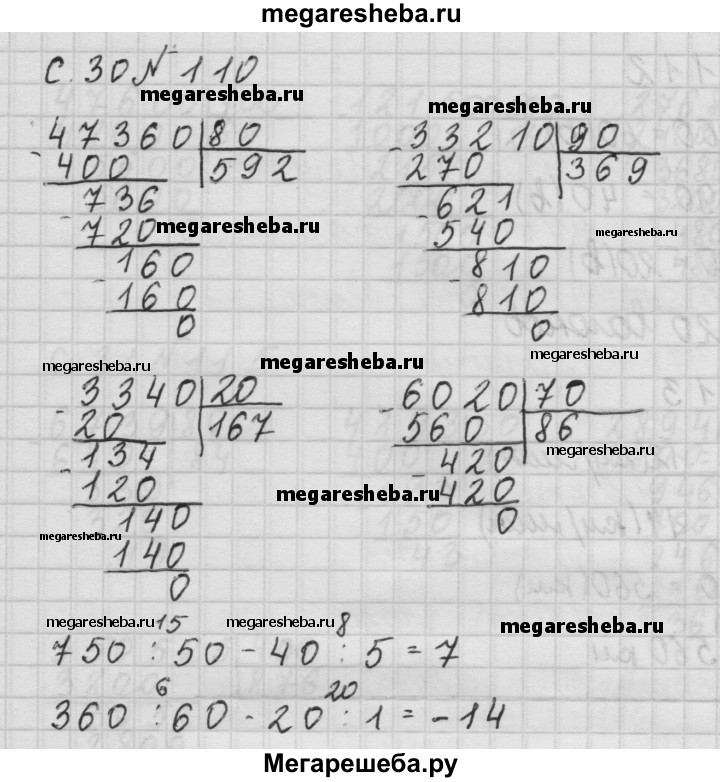 megaresheba.ru
с. 30 № 110
megaresheba.ru
megaresheba.ru
- 47360 | 80
400 | 592
- 736
720
- 160
160
0
megaresheba.ru
- 33210 | 90
270 | 369
- 621
540
- 810
810
0
megaresheba.ru
megaresheba.ru
megaresheba.ru
megaresheba.ru
- 3340 | 20
20 | 167
- 134
120
140
140
0
megaresheba.ru
megaresheba.ru
- 6020 | 70
560 | 86
- 420
420
0
megaresheba.ru
megaresheba.ru 15 megaresheba.ru 8
megaresheba.ru
750 : 50 - 40 : 5 = 7
6 20
360 : 60 - 20 : 1 = -14
Мегарешеба.ру